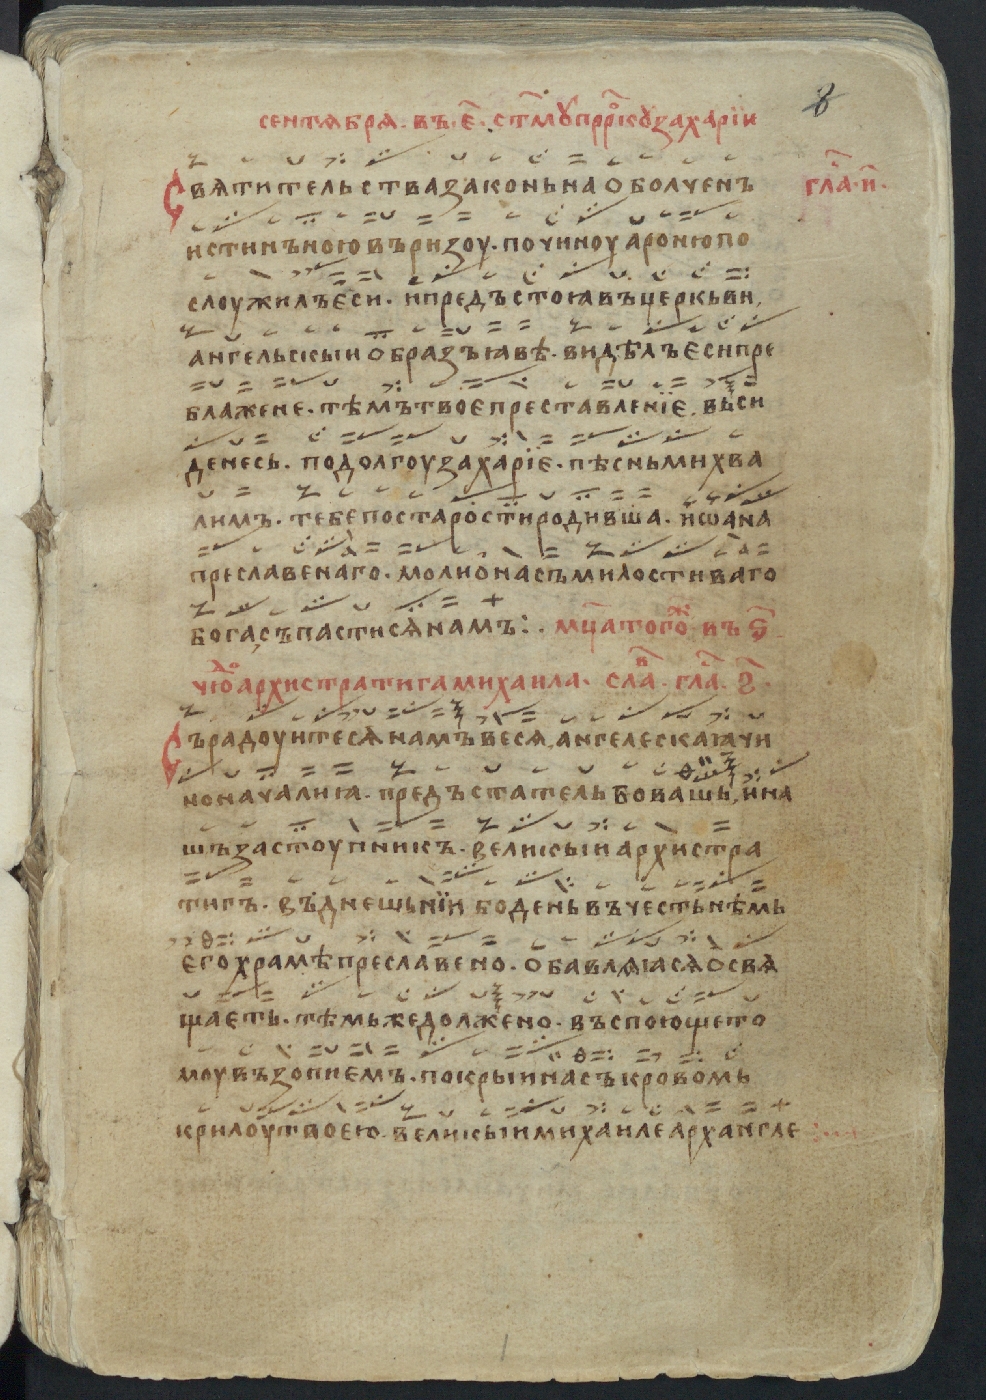 8
сентѧбрѧ · въ · е҃ · ст҃мꙋ прр҃окꙋ захаріи
свѧтительства законьна оболченъ гла҃ · и҃ ·
истинъною въ ризоу · по чиноу ароню по
слоужилъ еси · и предъстоꙗ въ церкьви,
ангельскыи образъ ꙗвѣ · видѣлъ еси пре
блажене · тѣмъ твое преставленїе вьси
денесь · по долгоу захарїе · пѣсньми хва
лимъ · тебе по старости родивша · иѡана
преславенаго · моли о насъ милостиваго
бога, съпастисѧ намъ : · мц҃а тогоⷤ · въ ѕ҃
чюⷣо архистратига михаила · слаⷡ · гла҃ · ѕ҃ ·
сърадоуитесѧ намъ весѧ, ангелескаꙗ чи
ноначалиꙗ · предъстатель бо вашь, и на
шь застоупникъ · великыи архистра
тигъ · въ днешьнїи бо день въ честьнѣмь
его храмѣ преславено · обавлѧꙗсѧ освѧ
щаеть · тѣмь же долженo · въспоюще то
моу възопиемъ · покрыи насъ кровомь
крилоу твоею · великыи михаиле архангле